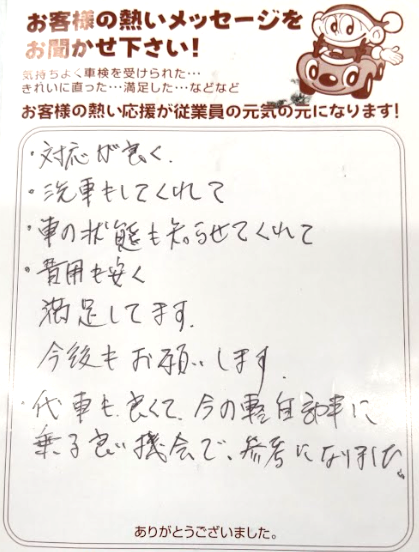 お客様の熱いメッセージを
お聞かせ下さい!
気持ちよく車検を受けられた…
きれいに直った…満足した…などなど
お客様の熱い応援が従業員の元気の元になります!
・対応が良く.
・洗車もしてくれて
・車の状態も知らせてくれて
・費用も安く
満足してます.
今後もお願いします.
・代車も良くて、今の軽自動車に
乗る良い機会で、参考になりました。
ありがとうございました。